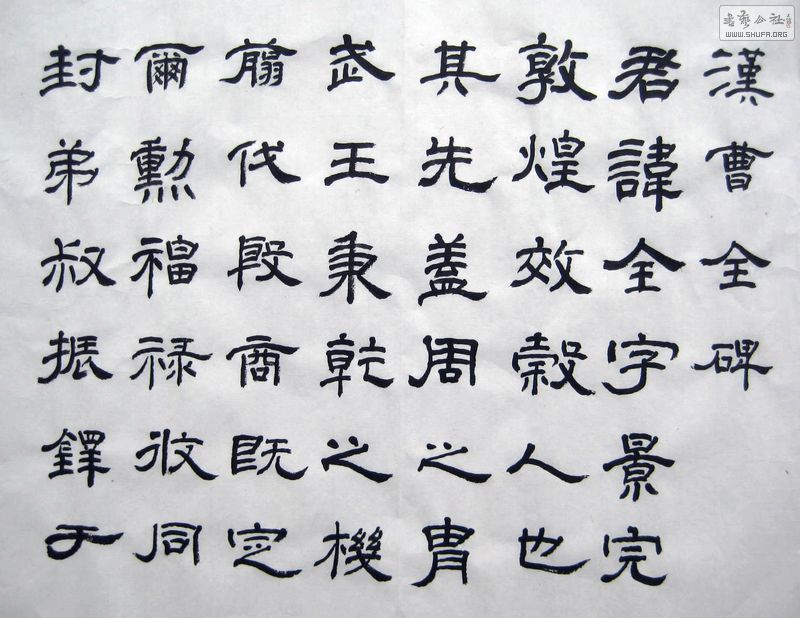 漢曹全碑
君諱全字景完
敦煌效穀人也
其先蓋周之胄
武王秉乾之機
翦伐殷商既定
爾勳福禄攸同
封弟叔振鐸于
書藝公社
WWW.SHUFA.ORG